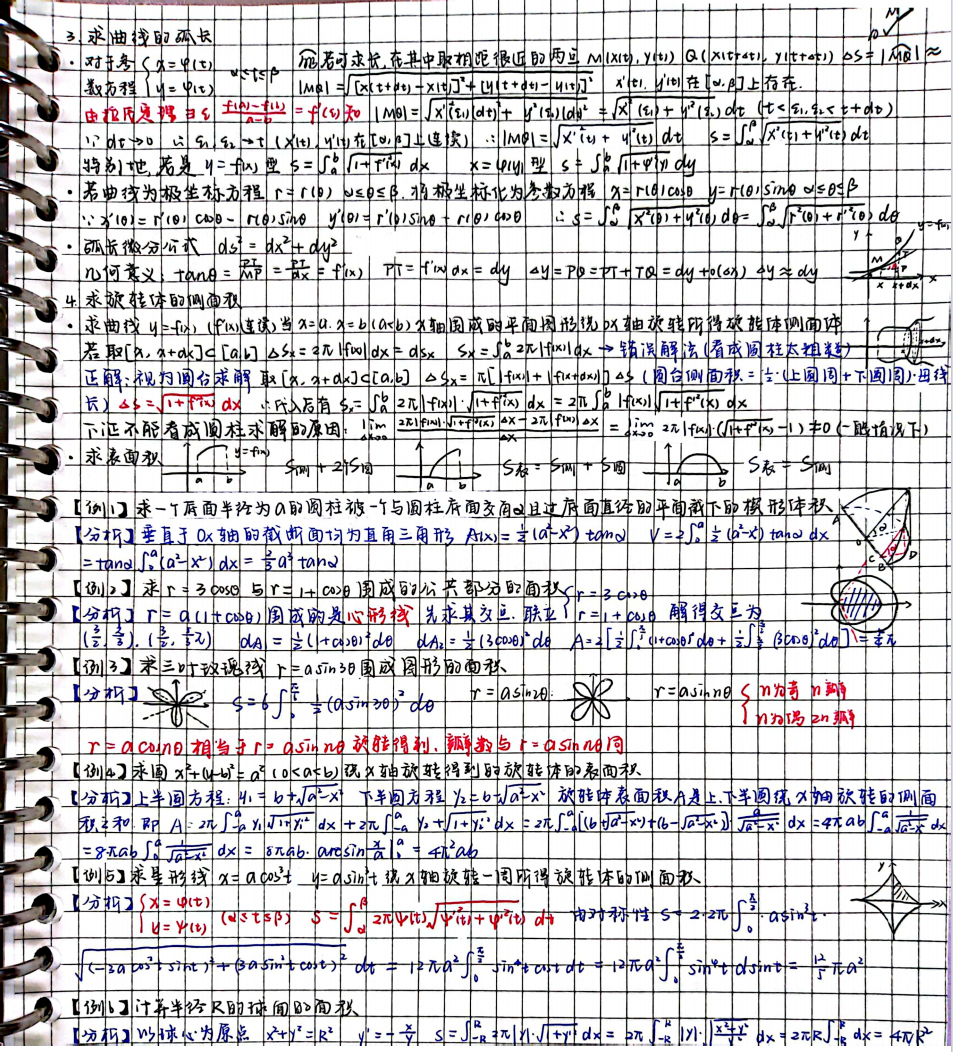 3. 求曲线的弧长
· 对于参数方程 { x=φ(t) y=ψ(t) α≤t≤β 若可求长,在其中取相距很近的两点 M(x(t), y(t)) Q(x(t+dt), y(t+dt)) ΔS=|MQ|≈
|MQ|=√([x(t+dt)-x(t)]²+[y(t+dt)-y(t)]²) x'(t), y'(t)在[α,β]上存在.
由拉氏定理 ∃ξ (f(a)-f(b))/(a-b)=f'(ξ)知 |MQ|=√(x'²(ξ₁)(dt)²+y'²(ξ₂)(dt)²)=√(x'²(ξ₁)+y'²(ξ₂)) dt (t<ξ₁,ξ₂<t+dt)
∵ dt→0 ∴ ξ₁,ξ₂→t (x'(t), y'(t)在[α,β]上连续) ∴|MQ|=√(x'²(t)+y'²(t)) dt S=∫_α^β √(x'²(t)+y'²(t)) dt
特别地,若是 y=f(x) 型 S=∫_a^b √(1+f'²(x)) dx x=φ(y)型 S=∫_a^b √(1+φ'²(y)) dy
· 若曲线为极坐标方程 r=r(θ) α≤θ≤β. 将极坐标化为参数方程 x=r(θ)cosθ y=r(θ)sinθ α≤θ≤β
∵ x'(θ)=r'(θ)cosθ-r(θ)sinθ y'(θ)=r'(θ)sinθ+r(θ)cosθ ∴ S=∫_α^β √(x'²(θ)+y'²(θ)) dθ=∫_α^β √(r²(θ)+r'²(θ)) dθ
· 弧长微分公式 ds²=dx²+dy²
几何意义: tanθ=PT/MP=PT/dx=f'(x) PT=f'(x)dx=dy Δy=PQ=PT+TQ=dy+o(Δx) Δy≈dy
4. 求旋转体的侧面积
· 求曲线 y=f(x) (f'(x)连续)当 x=a. x=b (a<b) x轴围成的平面图形绕ox轴旋转所得旋转体侧面体
若取[x, x+dx]⊂[a,b] ΔSx=2π|f(x)|dx=dSx Sx=∫_a^b 2π|f(x)|dx → 错误解法(看成圆柱太粗糙)
正解:视为圆台求解 取[x, x+dx]⊂[a,b] ΔSx=π[|f(x)|+|f(x+dx)|]ΔS (圆台侧面积=½·(上圆周+下圆周)·母线
长) ΔS=√(1+f'²(x)) dx ∴代入后有 Sx=∫_a^b 2π|f(x)|·√(1+f'²(x)) dx=2π∫_a^b |f(x)|√(1+f'²(x)) dx
下证不能看成圆柱求解的原因: lim_{Δx→0} (2π|f(x)|·√(1+f'²(x)) Δx-2π|f(x)|Δx)/Δx = lim_{Δx→0} 2π|f(x)|·(√(1+f'²(x))-1)≠0 (一般情况下)
· 求表面积 y=f(x) a b S侧+2个S圆 a b S表=S侧+S圆 a b S表=S侧
【例1】求一个底面半径为a的圆柱被一个与圆柱底面交角α且过底面直径的平面截下的楔形体积
【分析】垂直于ox轴的截断面均为直角三角形 A(x)=½(a²-x²)tanα V=2∫_0^a ½(a²-x²)tanα dx
=tanα∫_0^a(a²-x²)dx=⅔a³tanα
【例2】求 r=3cosθ 与 r=1+cosθ 围成的公共部分的面积
【分析】r=a(1+cosθ)围成的是心形线 先求其交点. 联立{ r=3cosθ r=1+cosθ 解得交点为
(3/2, π/3), (3/2, 5/3π) dA₁=½(1+cosθ)²dθ dA₂=½(3cosθ)²dθ A=2[½∫_0^{π/3}(1+cosθ)²dθ+½∫_{π/3}^{π/2}(3cosθ)²dθ]=5/4π
【例3】求三叶玫瑰线 r=asin3θ围成图形的面积
【分析】 S=6∫_0^{π/6} ½(asin3θ)²dθ r=asin2θ: r=asinnθ { n为奇 n瓣 n为偶 2n瓣
r=acosnθ 相当于 r=asinnθ 旋转得到. 瓣数与 r=asinnθ同
【例4】求圆 x²+(y-b)²=a² (0<a<b) 绕x轴旋转得到的旋转体的表面积
【分析】上半圆方程: y₁=b+√(a²-x²) 下半圆方程 y₂=b-√(a²-x²) 旋转体表面积A是上.下半圆绕x轴旋转的侧面
积之和. 即 A=2π∫_{-a}^a y₁√(1+y₁'²) dx+2π∫_{-a}^a y₂√(1+y₂'²) dx=2π∫_{-a}^a[(b+√(a²-x²))+(b-√(a²-x²))] a/√(a²-x²) dx=4πab∫_{-a}^a 1/√(a²-x²) dx
=8πab∫_0^a 1/√(a²-x²) dx=8πab·arcsin x/a|_0^a=4π²ab
【例5】求星形线 x=acos³t y=asin³t 绕x轴旋转一周所得旋转体的侧面积
【分析】{ x=φ(t) y=ψ(t) (α≤t≤β) S=∫_α^β 2πψ(t)√(φ'²(t)+ψ'²(t)) dt 由对称性 S=2·2π∫_0^{π/2} asin³t·
√((-3acos²t sint)²+(3asin²t cost)²) dt=12πa²∫_0^{π/2} sin⁴t cost dt=12πa²∫_0^{π/2} sin⁴t dsint=12/5 πa²
【例6】计算半径R的球面的面积
【分析】以球心为原点 x²+y²=R² y'=-x/y S=∫_{-R}^R 2π|y|·√(1+y'²) dx=2π∫_{-R}^R |y|·√((x²+y²)/y²) dx=2πR∫_{-R}^R dx=4πR²